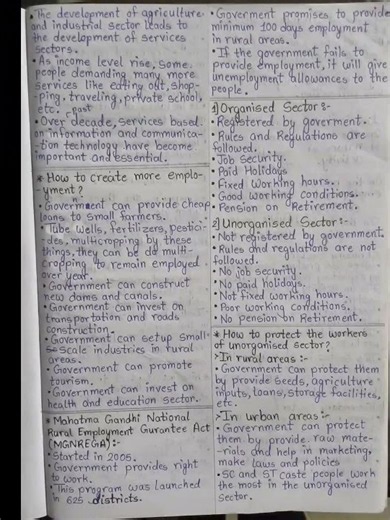 • The development of agriculture
and industrial sector leads to
the development of services
sectors.
• As income level rise, some
people demanding many more
services like eating out, shop-
ping, traveling, private school,
etc. past
• Over decade, services based
on information and communica-
tion technology have become
important and essential.
* How to create more emplo-
yment?
• Goverment can provide cheap
loans to small farmers.
• Tube wells, fertilizers, pestici-
des, multicropping by these
things, they can do multi-
cropping to remain employed
over year.
• Government can construct
new dams and canals.
• Government can invest on
transportation and roads
construction.
• Government can setup small-
scale industries in rural
areas.
• Government can promote
tourism.
• Government can invest on
health and education sector.
* Mahatma Gandhi National
Rural Employment Gurantee Act
(MGNREGA) :-
• Started in 2005.
• Government provides right
to work.
• This program was launched
in 625 districts.
• Goverment promises to provide
minimum 100 days employment
in rural areas.
• If the government fails to
provide employment, it will give
unemployment allowances to the
people.
1] Organised Sector :-
• Registered by goverment.
• Rules and Regulations are
followed.
• Job Security.
• Paid Holidays
• Fixed Working hours.
• Good Working conditions.
• Pension on Retirement.
2] Unorganised Sector :-
• Not registered by government.
• Rules and regulations are not
followed.
• No job security.
• No paid holidays.
• Not fixed working hours.
• Poor working conditions.
• No pension on Retirement.
* How to protect the workers
of unorganised sector?
> In rural areas :-
• Government can protect them
by provide seeds, agriculture
inputs, loans, storage facilities,
etc.
> In urban areas :-
• Government can protect
them by provide raw mate-
rials and help in marketing,
make laws and policies
• SC and ST caste people work
the most in the unorganised
sector.